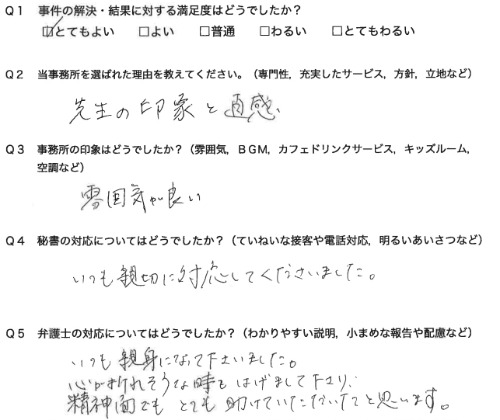 Q1 事件の解決・結果に対する満足度はどうでしたか?
☑とてもよい □よい □普通 □わるい □とてもわるい
Q2 当事務所を選ばれた理由を教えてください。(専門性，充実したサービス，方針，立地など)
先生の印象と直感、
Q3 事務所の印象はどうでしたか?(雰囲気，BGM，カフェドリンクサービス，キッズルーム，
空調など)
雰囲気が良い
Q4 秘書の対応についてはどうでしたか?(ていねいな接客や電話対応，明るいあいさつなど)
いつも親切に対応してくださいました。
Q5 弁護士の対応についてはどうでしたか?(わかりやすい説明，小まめな報告や配慮など)
いつも親身になって下さいました。
心が折れそうな時もはげまして下さり、
精神面でもとても助けていただいたと思います。